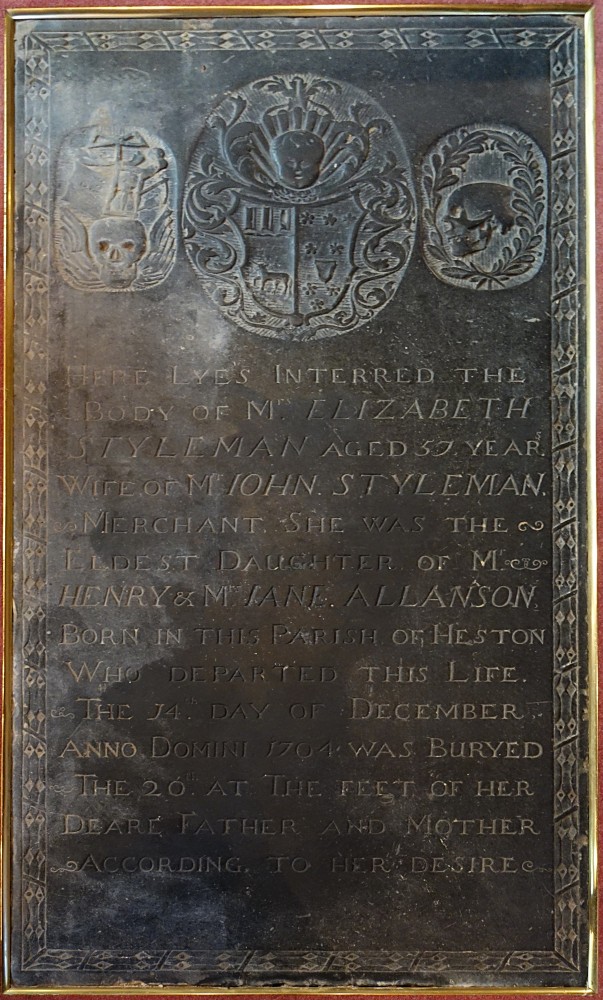 HERE LYES INTERRED THE
BODY OF Mrs ELIZABETH
STYLEMAN AGED 57 YEARS.
WIFE OF Mr IOHN. STYLEMAN.
MERCHANT. SHE WAS THE
ELDEST DAUGHTER OF Mr
HENRY & Mrs IANE. ALLANSON.
BORN IN THIS PARISH OF HESTON
WHO DEPARTED THIS LIFE.
THE 14th DAY OF DECEMBER
ANNO DOMINI 1704 WAS BURYED
THE 20th AT THE FEET OF HER
DEARE FATHER AND MOTHER
ACCORDING. TO HER DESIRE